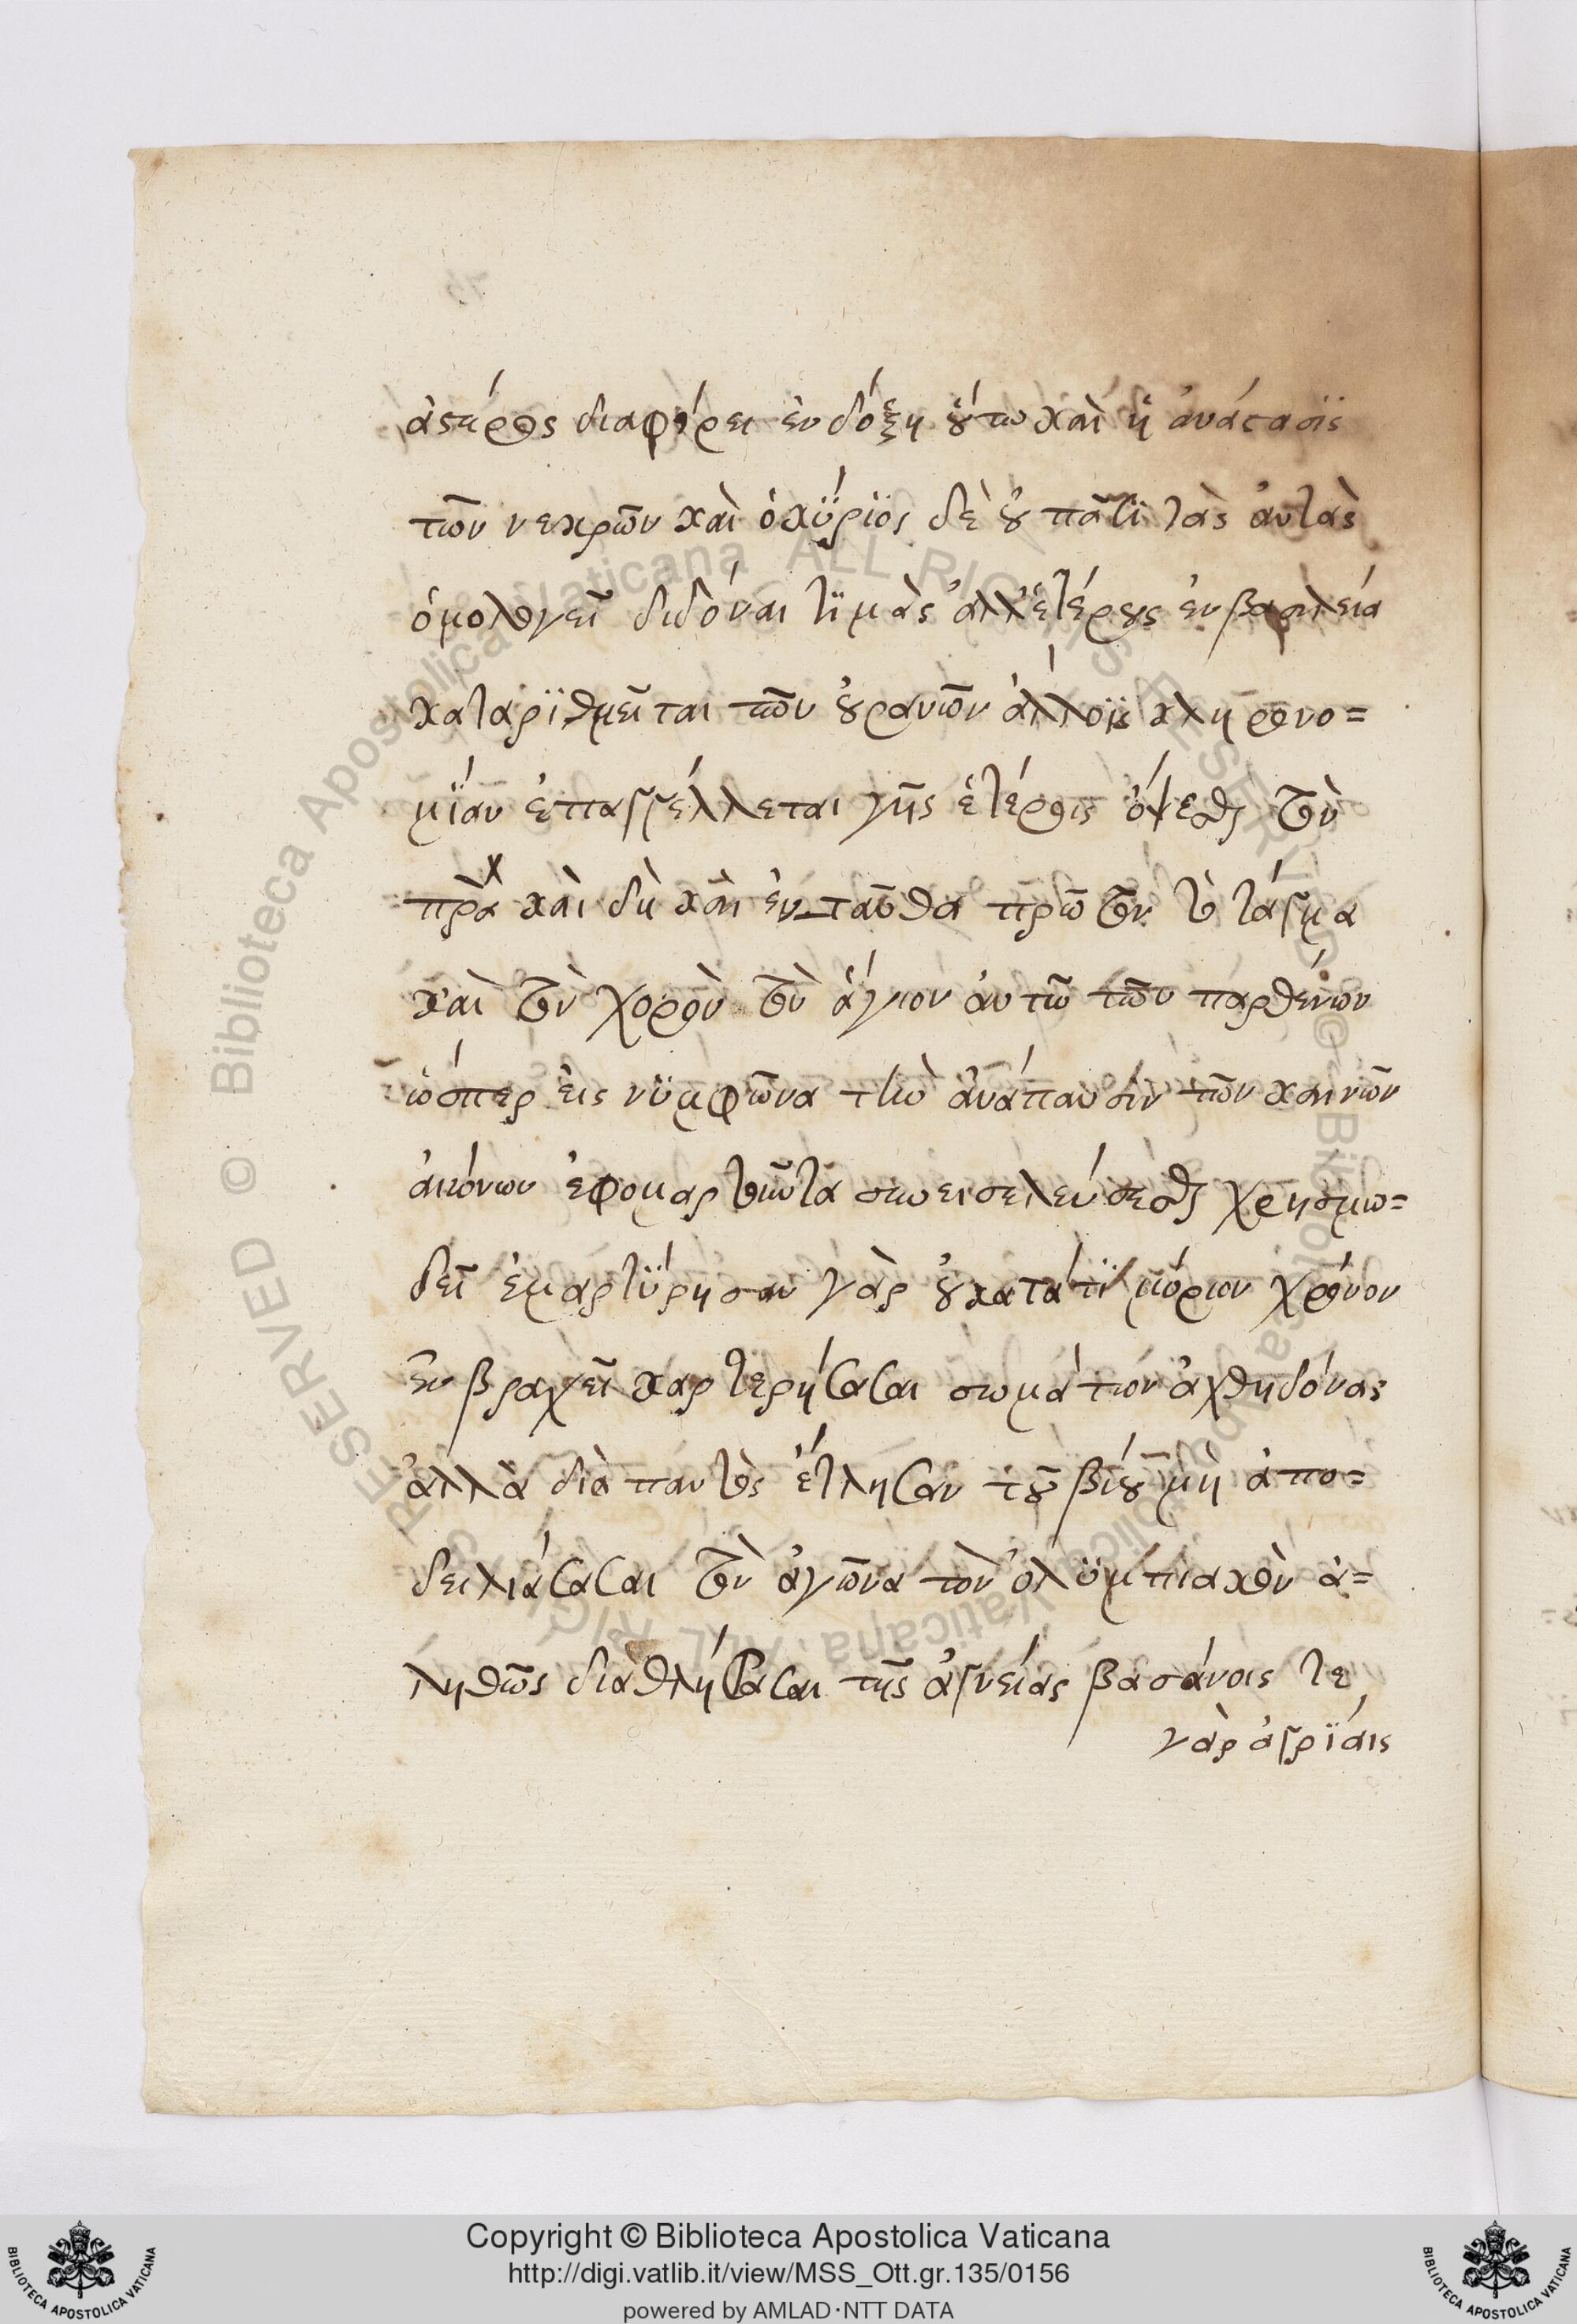 ἀστέρος διαφέρει ἐν δόξη οὕτω καὶ ἡ ἀνάστασϊς
τῶν νεκρῶν καὶ ὁ κΰρϊος δὲ οὐ πᾶσϊ τὰς ἀυτὰς
ὁμολογεῖ διδόναι τϊμὰς ἀλλ' ἑτέρους ἐν βασιλεία
καταρϊθμεῖται τῶν οὐρανῶν ἄλλοϊς κληρονο=
μΐαν ἐπαγγέλλεται γῆς ἑτέροις ὄψεσθαι τὸν
πρὰ καὶ δὴ καὶ ἐνταῦθα πρῶτον τὸ τάγμα
καὶ τὸν χορὸν τὸν ἅγιον ἀυτῶ τῶν παρθένων
ὥσπερ ἐις νϋμφῶνα τὴν ἀνάπαυσιν τῶν καινῶν
ἀιώνων ἐφομαρτοῦντα συνεισελεύσεσθαι χρησμω=
δεῖ ἐμαρτΰρησαν γὰρ οὐ κατά τϊ μόριον χρόνον
ἐν βραχεῖ καρτερήσασαι σωμάτων ἀχθηδόνας
ἀλλὰ διὰ παντὸς ἔτλησαν τοῦ βίου μὴ ἀπο=
δειλιάσασαι τὸν ἀγῶνα τὸν ὀλϋμπιακὸν ἀ=
ληθῶς διαθλήσασαι τῆς ἁγνείας βασάνοις τε
γὰρ ἀγρΐαις
© Biblioteca Apostolica Vaticana ALL RIGHTS RESERVED © Biblioteca Apostolica Vaticana ALL RIGHTS RESERVED
Copyright © Biblioteca Apostolica Vaticana
http://digi.vatlib.it/view/MSS_Ott.gr.135/0156
powered by AMLAD·NTT DATA
BIBLIOTECA APOSTOLICA VATICANA
BIBLIOTECA APOSTOLICA VATICANA